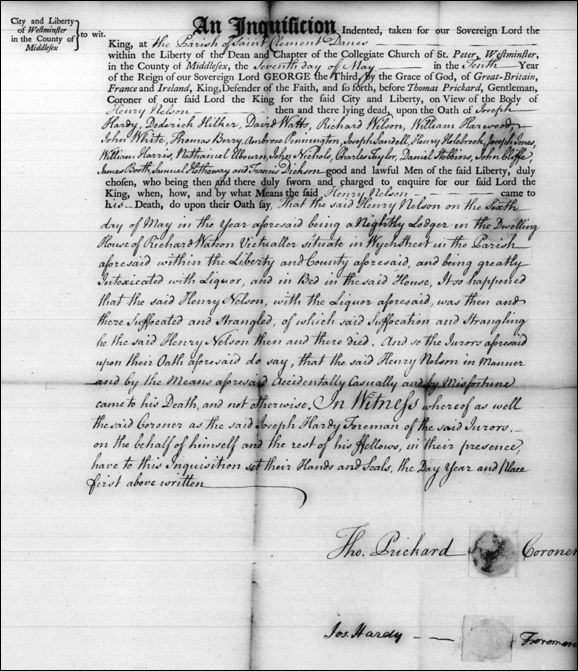 City and Liberty
of Westminster
in the County of
Middlesex
to wit.
An Inquisition Indented, taken for our Sovereign Lord the
King, at the Parish of Saint Clement Danes
within the Liberty of the Dean and Chapter of the Collegiate Church of St. Peter, Westminster,
in the County of Middlesex, the Seventh day of May in the Tenth Year
of the Reign of our Sovereign Lord GEORGE the Third, by the Grace of God, of Great-Britain,
France and Ireland, King, Defender of the Faith, and so forth, before Thomas Prickard, Gentleman,
Coroner of our said Lord the King for the said City and Liberty, on View of the Body of
Henry Nelson then and there lying dead, upon the Oath of Joseph
Hardy, Dederick Hilker, David Watts, Richard Wilson, William Harwood
John White, Thomas Berry, Ambrose Pennington, Joseph Sandell, Henry Holebrook, Joseph Jones,
William Harris, Nathaniel Uburn, John Nichols, Charles Taylor, Daniel Stebbins, John Cliffe
James Booth, Samuel Hathaway and Francis Dickson good and lawful Men of the said Liberty, duly
chosen, who being then and there duly sworn and charged to enquire for our said Lord the
King, when, how, and by what Means the said Henry Nelson came to
his Death, do upon their Oath say, That the said Henry Nelson on the Sixth
day of May in the Year aforesaid being a Nightly Lodger in the Dwelling
House of Richard Watson Victualler situate in Wych Street in the Parish
aforesaid within the Liberty and County aforesaid, and being greatly
Intoxicated with Liquor, and in Bed in the said House, It so happened
that the said Henry Nelson, with the Liquor aforesaid, was then and
there Suffocated and Strangled, of which said Suffocation and Strangling
he the said Henry Nelson then and there died. And so the Jurors aforesaid
upon their Oath aforesaid do say, that the said Henry Nelson in Manner
and by the Means aforesaid Accidentally Casually and by Misfortune
came to his Death, and not otherwise. In Witness whereof as well
the said Coroner as the said Joseph Hardy Foreman of the said Jurors,
on the behalf of himself and the rest of his Fellows, in their presence,
have to this Inquisition set their Hands and Seals, the Day Year and Place
first above written
Tho. Prickard Coroner
Jos. Hardy Foreman